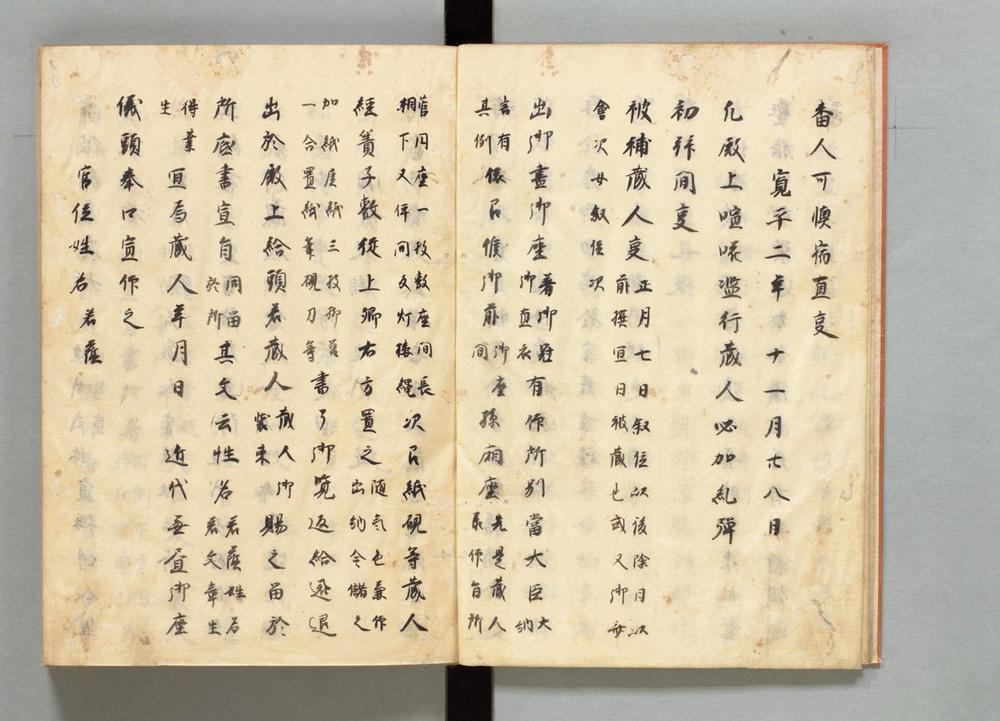 番人可懊病直事
寛平二年十一月廿八日
凡殿上喧嗄濫行蔵人必加糺弾
初拜間事
被補蔵人事正月七日叙位以後除目以
前撰宣日被蔵也或又御
會次女叙位次
出御晝御座著御冠
御直衣有作所別當大臣大
納
言有
其例依召候御前御座
間孫廂座先是蔵人
所
菅円座一枚敷座間長
相下又件間立灯 次召紙硯等蔵人
經簀子敷從上卿右方置之随気色兼作
出納令儲之
加紙屋紙三枚柳筥
一合置紙筆硯刀等書了御覧返給逐退
出於殿上給頭若蔵人蔵人御
賜之留於
所底書宣旨同留
於所其文云姓名若蔭姓名
若文章生
得業
生宜為蔵人年月日 近代無昼御座
儀頭奉口宣作之
官位姓名 若蔭